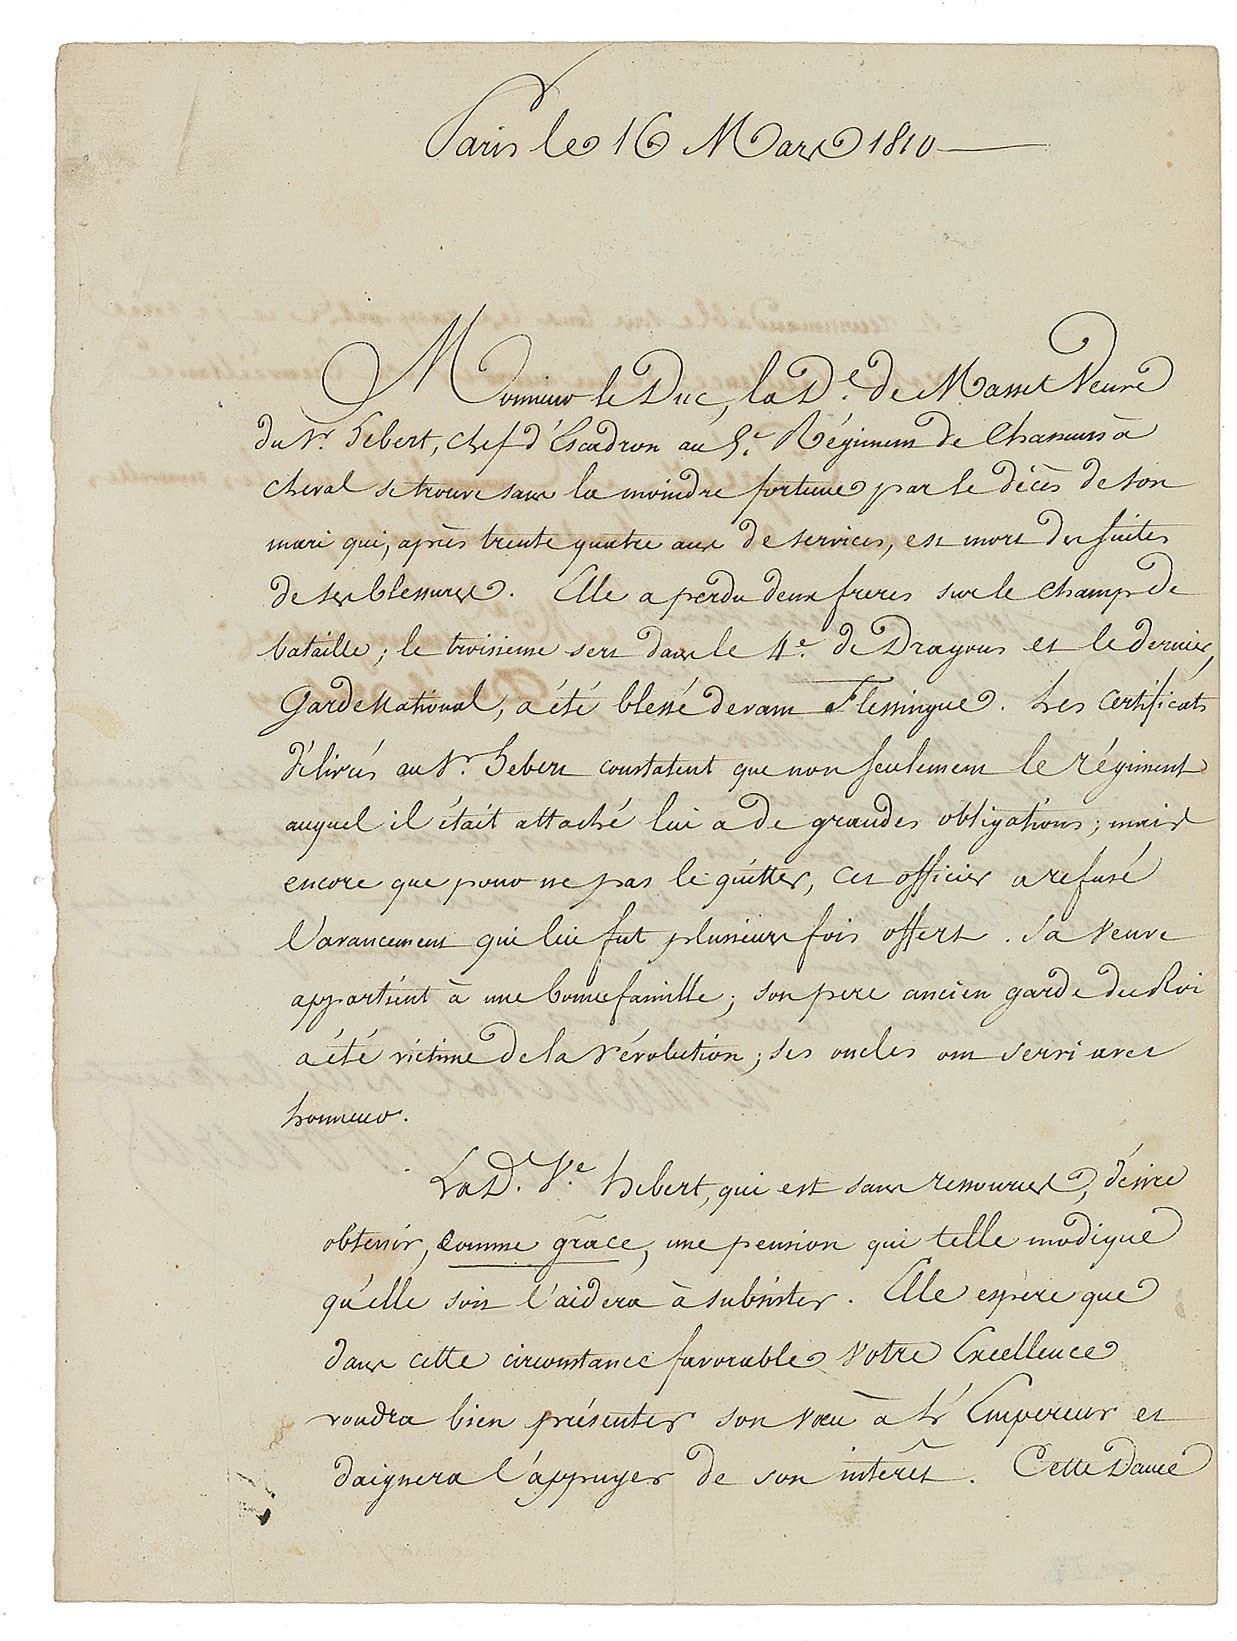 Paris le 16 Mars 1810
Monsieur le Duc, la De. de Masset Veuve
du Sr. hebert, chef d'Escadron au 5e. Régiment de Chasseurs à
cheval se trouve sans la moindre fortune par le décès de son
mari qui, après trente quatre ans de services, est mort des suites
de ses blessures. Elle a perdu deux freres sur le champ de
bataille; le troisieme sert dans le 4e. de Dragons et le dernier,
Garde National, a été blessé devant Flessingue. Les certificats
délivrés au Sr. hebert constatent que non seulement le régiment
auquel il était attaché lui a de grandes obligations; mais
encore que pour ne pas le quitter, cet officier a refusé
l'avancement qui lui fut plusieurs fois offert. Sa veuve
appartient à une bonne famille; son pere ancien garde du Roi
a été victime de la révolution; ses oncles ont servi avec
honneur.
La D. Ve. hebert, qui est sans ressources, désire
obtenir, comme grâce, une pension qui telle modique
qu'elle soit l'aidera à subsister. Elle espère que
dans cette circonstance favorable Votre Excellence
voudra bien présenter son vœu à l'Empereur et
daignera l'appuyer de son intérêt. Cette Dame